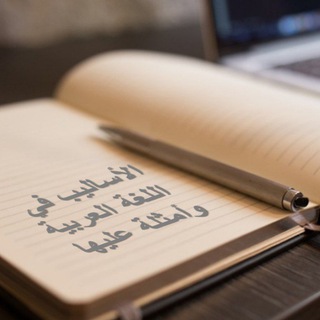 الأساليب في
اللغة العربية
وأمثلة عليها